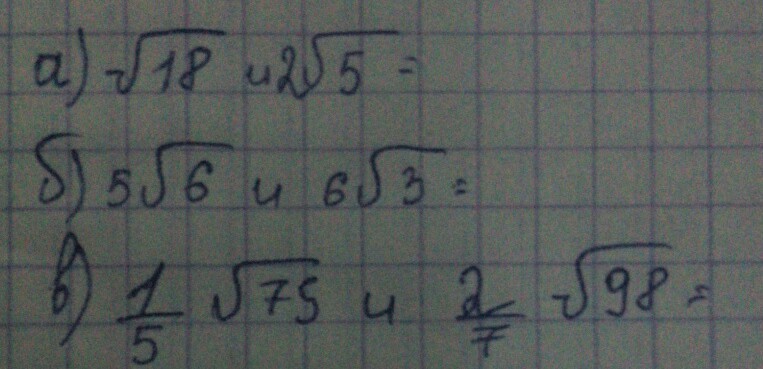 а) √18 и 2√5 =
б) 5√6 и 6√3 =
в) 1/5 √75 и 2/7 √98 =